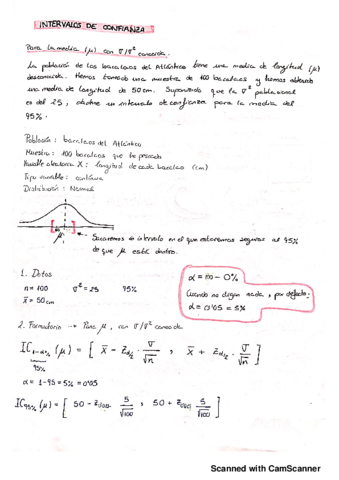 INTERVALOS DE CONFIANZA
Para la media (μ) con σ/σ² conocida.
La población de los bacalaos del Atlántico tiene una media de longitud (μ)
desconocida. Hemos tomado una muestra de 100 bacalaos y hemos obtenido
una media de longitud de 50 cm. Suponiendo que la σ² poblacional
es del 25, obtener un intervalo de confianza para la media del
95%.
Población: bacalaos del Atlántico
Muestra: 100 bacalaos que he pescado
Variable aleatoria X: longitud de cada bacalao (cm)
Tipo variable: continua
Distribución: Normal
μ
Sacaremos el intervalo en el que estaremos seguros al 95%
de que μ está dentro.
1. Datos
n = 100 σ² = 25 95%
x̄ = 50 cm
α = 100 - 0%
Cuando no digan nada, por defecto:
α = 0'05 = 5%
2. Formulario → Para μ, con σ/σ² conocida
IC₁₋α% (μ) = [ x̄ - Z_α/2 · σ/√n , x̄ + Z_α/2 · σ/√n ]
95%
α = 1-95 = 5% = 0'05
IC95% (μ) = [ 50 - Z 5/√100 , 50 + Z 5/√100 ]
Scanned with CamScanner